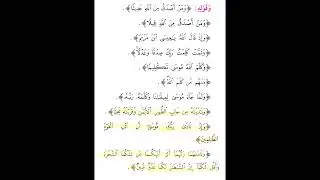 وَقَوْلِهِ: ﴿وَمَنْ أَصْدَقُ مِنَ اللَّهِ حَدِيثًا﴾.
﴿وَمَنْ أَصْدَقُ مِنَ اللَّهِ قِيلًا﴾.
﴿وَإِذْ قَالَ اللَّهُ يَٰعِيسَى ابْنَ مَرْيَمَ﴾.
﴿وَتَمَّتْ كَلِمَتُ رَبِّكَ صِدْقًا وَعَدْلًا﴾.
﴿وَكَلَّمَ اللَّهُ مُوسَىٰ تَكْلِيمًا﴾.
﴿مِنْهُم مَّن كَلَّمَ اللَّهُ﴾.
﴿وَلَمَّا جَاءَ مُوسَىٰ لِمِيقَٰتِنَا وَكَلَّمَهُ رَبُّهُ﴾.
﴿وَنَٰدَيْنَٰهُ مِن جَانِبِ الطُّورِ الْأَيْمَنِ وَقَرَّبْنَٰهُ نَجِيًّا﴾.
﴿وَإِذْ نَادَىٰ رَبُّكَ مُوسَىٰ أَنِ ائْتِ الْقَوْمَ
الظَّٰلِمِينَ﴾.
﴿وَنَادَىٰهُمَا رَبُّهُمَا أَلَمْ أَنْهَكُمَا عَن تِلْكُمَا الشَّجَرَةِ
وَأَقُل لَّكُمَا إِنَّ الشَّيْطَٰنَ لَكُمَا عَدُوٌّ مُّبِينٌ﴾.